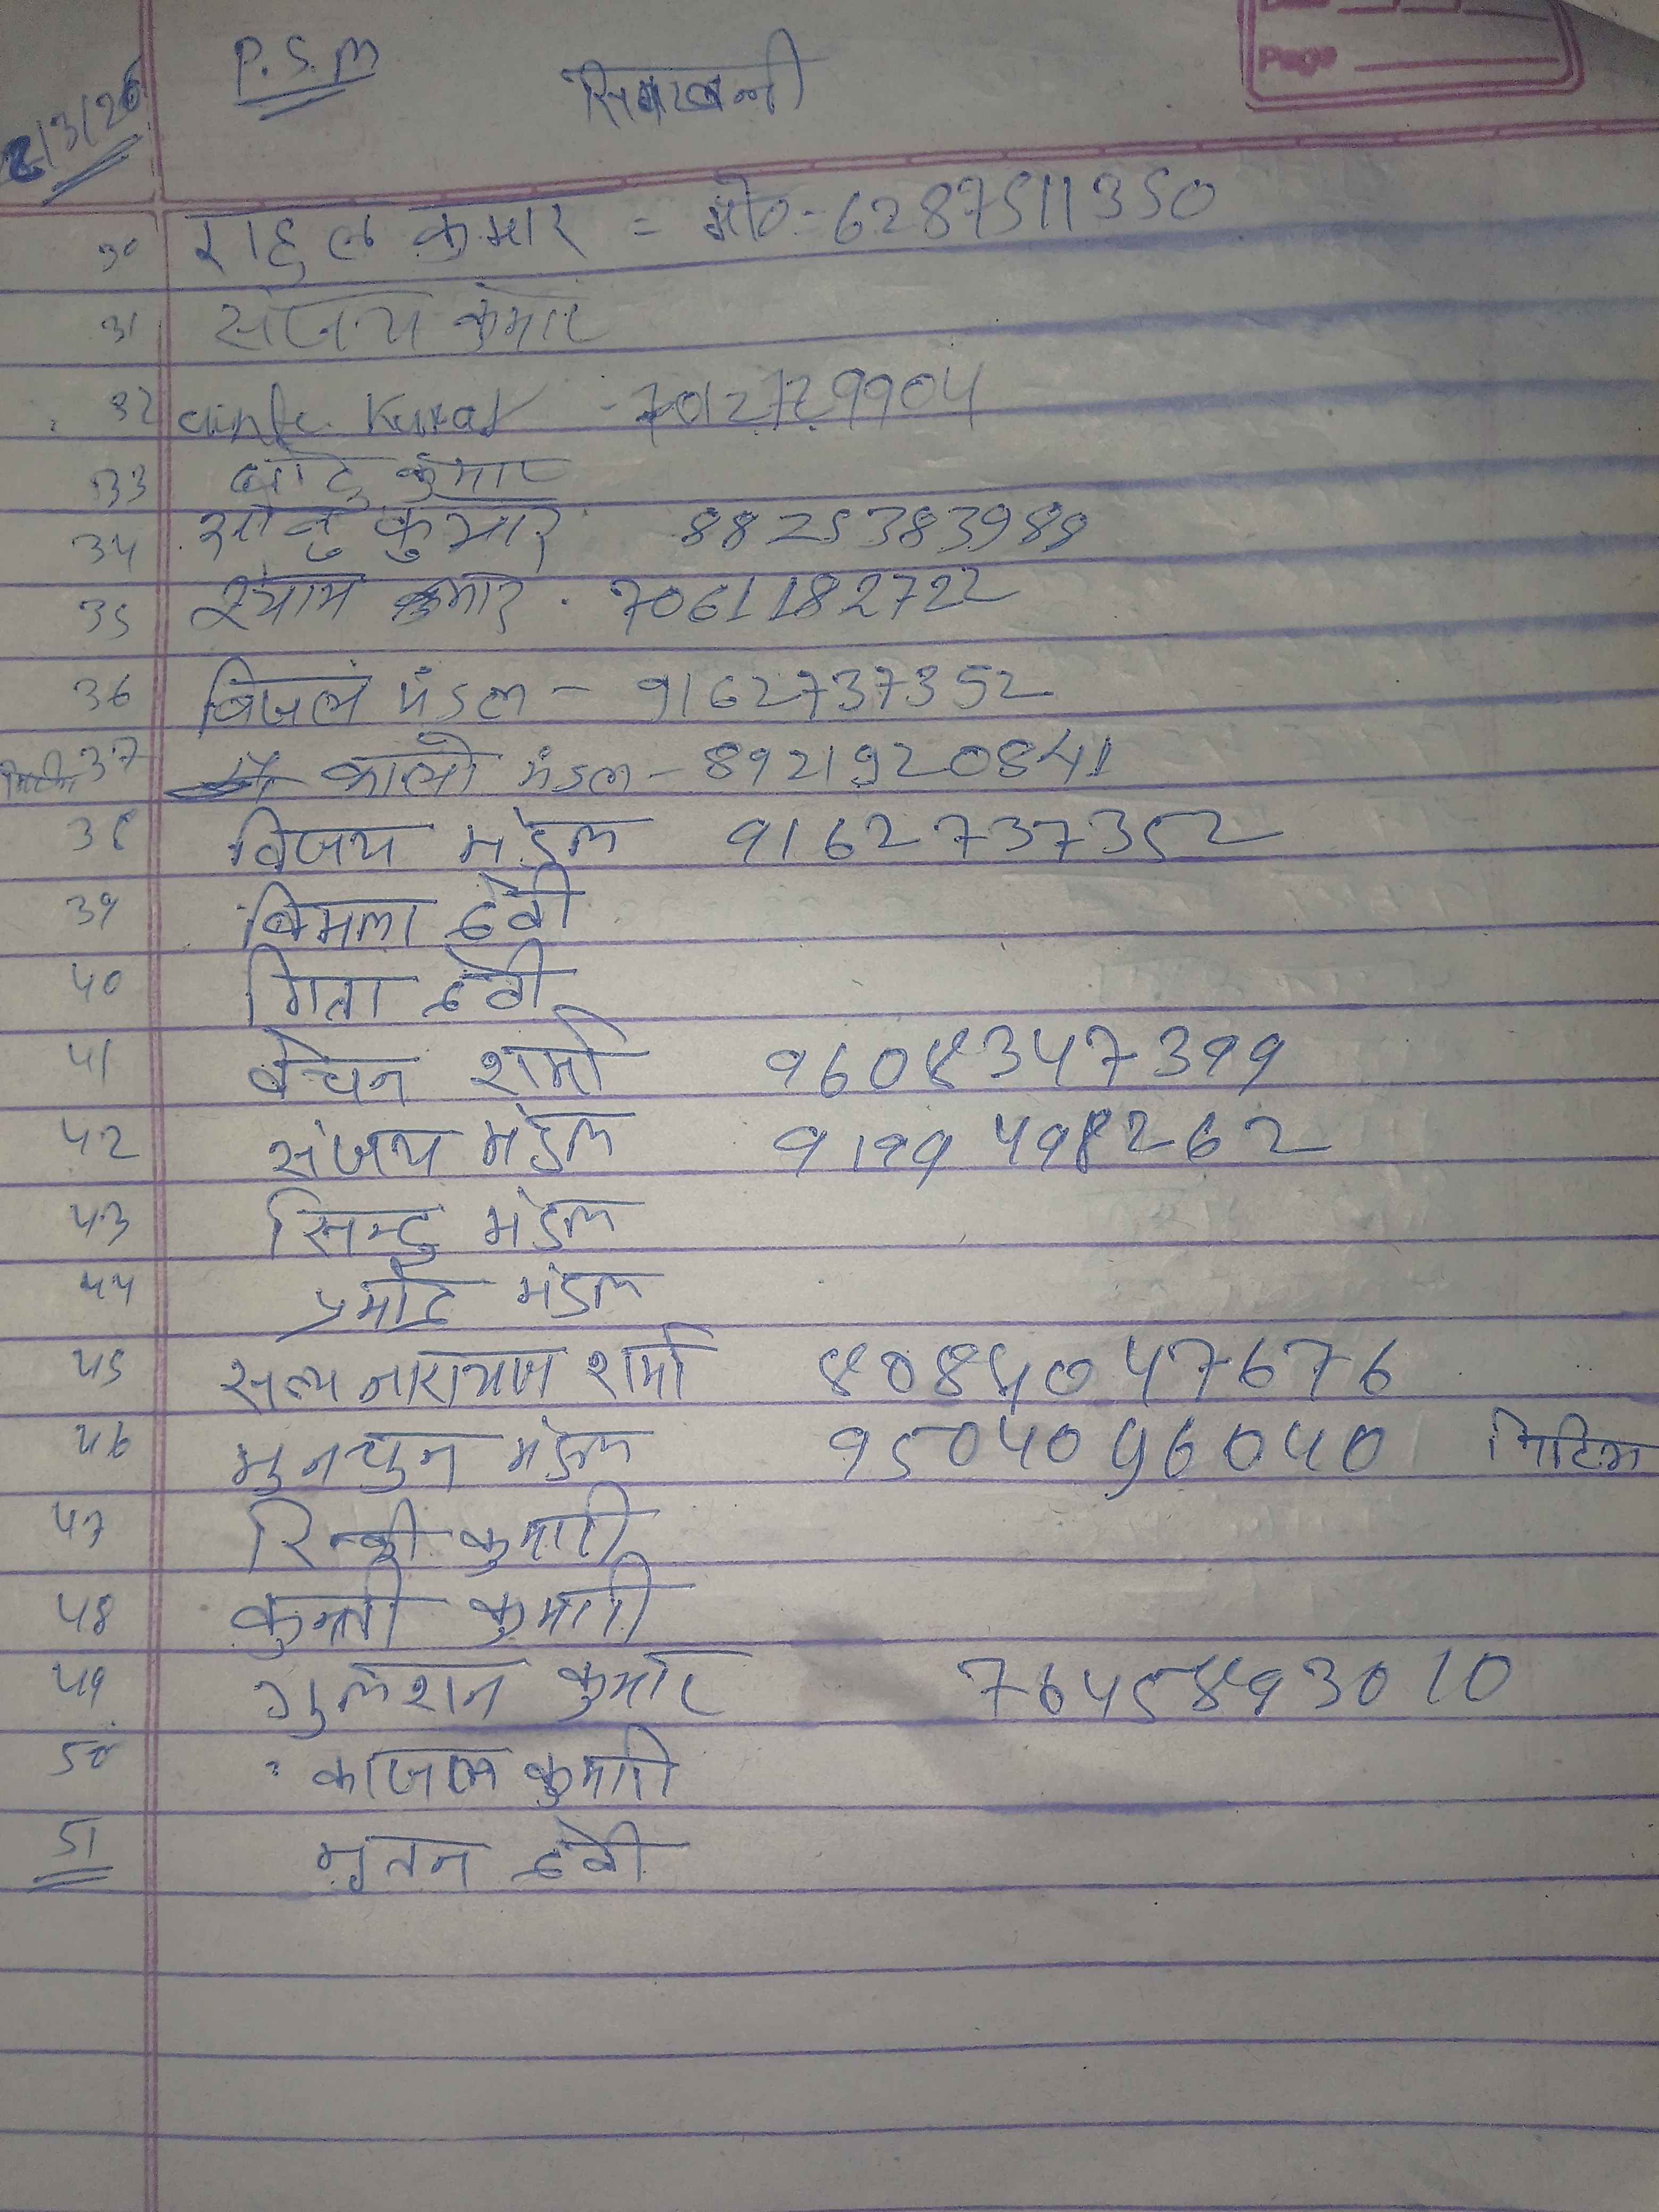 Page
P.S.M
2/3/26
30 राहुल कुमार = मो०-6287511350
31 संजय कुमार
32 -7012729904
33 कुमार
34 कुमार 8825383989
35 श्याम कुमार . 7061182722
36 बिजल मंडल - 9162737352
37 कालो मंडल - 8921920841
38 विजय मंडल 9162737352
39 बिमला देवी
40 गिता देवी
41 बेचन शर्मा 9608347399
42 संजय मंडल 9199498262
43 सिन्टु मंडल
44 प्रमोद मंडल
45 सत्य नारायण शर्मा 8084047676
46 मुनचुन मंडल 9504096040 मिटिंग
47 रिन्की कुमारी
48 कुन्ती कुमारी
49 गुलशन कुमार 7645893010
50 काजल कुमारी
51 नुतन देवी